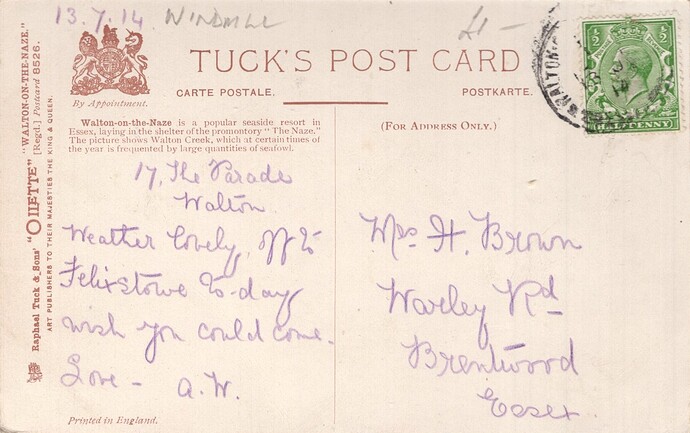 13.7.14 WINDMILL £1-
TUCK'S POST CARD
CARTE POSTALE. POSTKARTE.
By Appointment.
(FOR ADDRESS ONLY.)
Walton-on-the-Naze is a popular seaside resort in
Essex, laying in the shelter of the promontory "The Naze."
The picture shows Walton Creek, which at certain times of
the year is frequented by large quantities of seafowl.
17, The Parade
Walton.
Weather lovely, off to
Felixstowe to-day
wish you could come.
Love - A.W.
Mrs H. Brown
Warley Rd
Brentwood
Essex.
Printed in England.
Raphael Tuck & Sons' "OILETTE" "WALTON-ON-THE-NAZE."
[Regd.] Postcard 8526.
ART PUBLISHERS TO THEIR MAJESTIES THE KING & QUEEN.
WALTON-O
½ ½
HALFPENNY